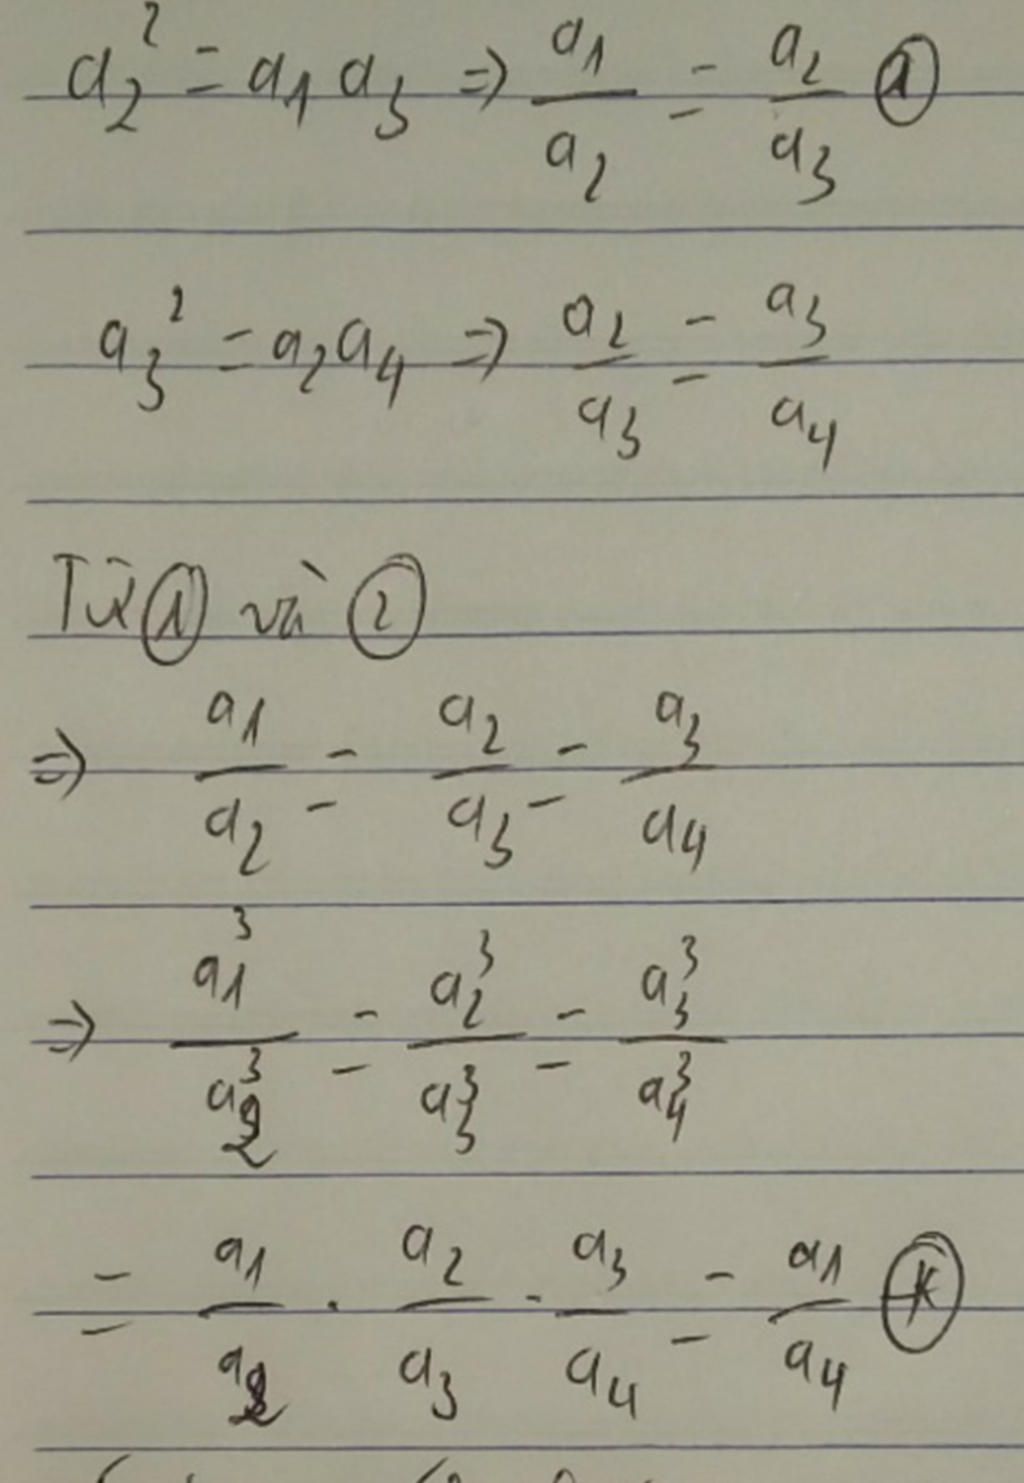 a₂² = a₁ a₃ ⇒ a₁/a₂ = a₂/a₃ ①
a₃² = a₂a₄ ⇒ a₂/a₃ = a₃/a₄
Từ ① và ②
⇒ a₁/a₂ = a₂/a₃ = a₃/a₄
⇒ a₁³/a₂³ = a₂³/a₃³ = a₃³/a₄³
= a₁/a₂ . a₂/a₃ . a₃/a₄ = a₁/a₄ (*)